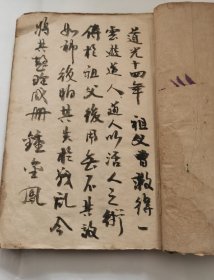 道光十四年 祖父曾救得一
雲遊道人道人以活人之術
傳於祖父後用無不其效
如神後怕其失於戰亂今
將其整理成冊 鐘金鳳